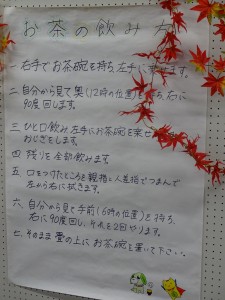 お茶の飲み方
一 右手でお茶碗を持ち、左手に乗せます。
二 自分から見て奥(12時の位置)を持ち、右に
90度回します。
三 ひと口飲み、左手にお茶碗を乗せ
おじぎをします。
四 残りを全部飲みます。
五 口をつけたところを親指と人差指でつまんで
左から右に拭きます。
六 自分から見て手前(6時の位置)を持ち、
右に90度回し、それを2回やります。
七 そのまま畳の上にお茶碗を置いて下さい。